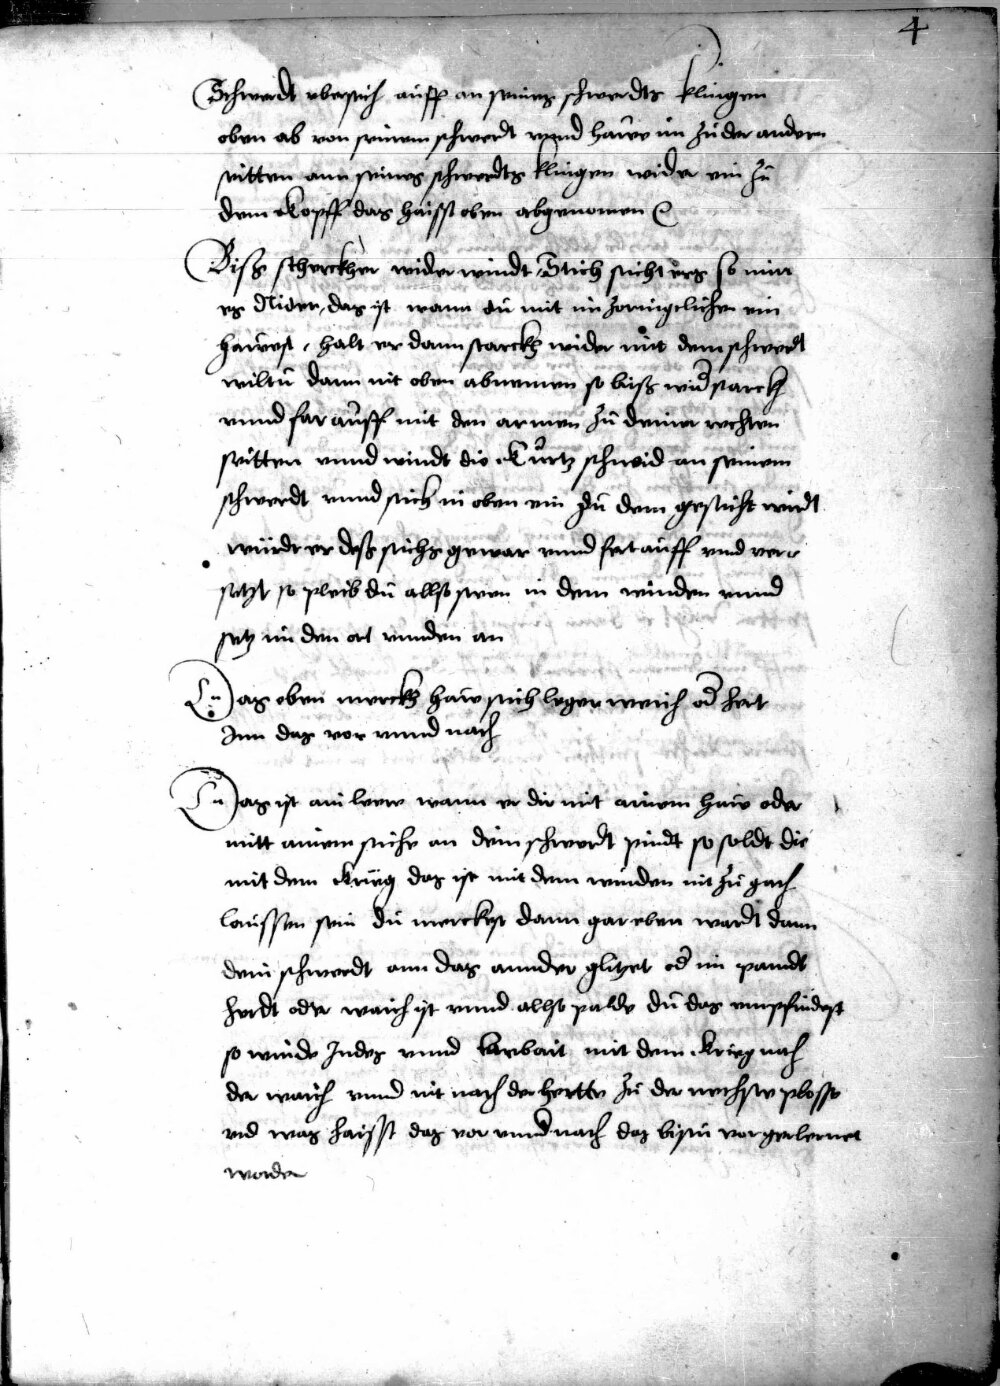 4
Schwerdt vbersich auff an seines schwerdts klingen
oben ab von seinem schwerdt vnnd hawe im zu der andern
seitten ann seines schwerdtz klingen wider ein zu
dem kopff das haisst oben abgenomen
Biss sterckher wider windt Stich sicht ers so nim
es Nider, das ist wann du mit im zornigclichen ein
hawest, halt er dann starckh wider mit dem schwerdt
wiltu dann nit oben abnemen so biss wid starckh
vnnd far auff mit den armen zu deiner rechten
seitten vnnd windt die kurtz schneid an seinem
schwerdt vnnd stich in oben ein zu dem gesicht wirdt
würdt er dess stichs gewar vnnd fert auff vnd ver
setzt so pleib du allso sten in dem winden vnnd
setz im den ort vnnden an
Das eben merckh haw stich leger weich od hert
Inn das vor vnnd nach
Das ist ain leer wann er dir mit ainem haw oder
mitt ainem stiche an dein schwerdt pindt so soldt die
mit dem krieg das ist mit dem winden nit zu gach
laussen sein du merckest dann gar eben wardt dann
dein schwerdt ann das annder glitzet od im pandt
herdt oder waich ist vnnd allso palde du das empfindest
so winde Indes vnnd arbait mit dem krieg nach
der waich vnnd nit nach der hertte zu der nechste plosse
vnd was haisst das vor vnnd nach das bistu vor gelernet
worden